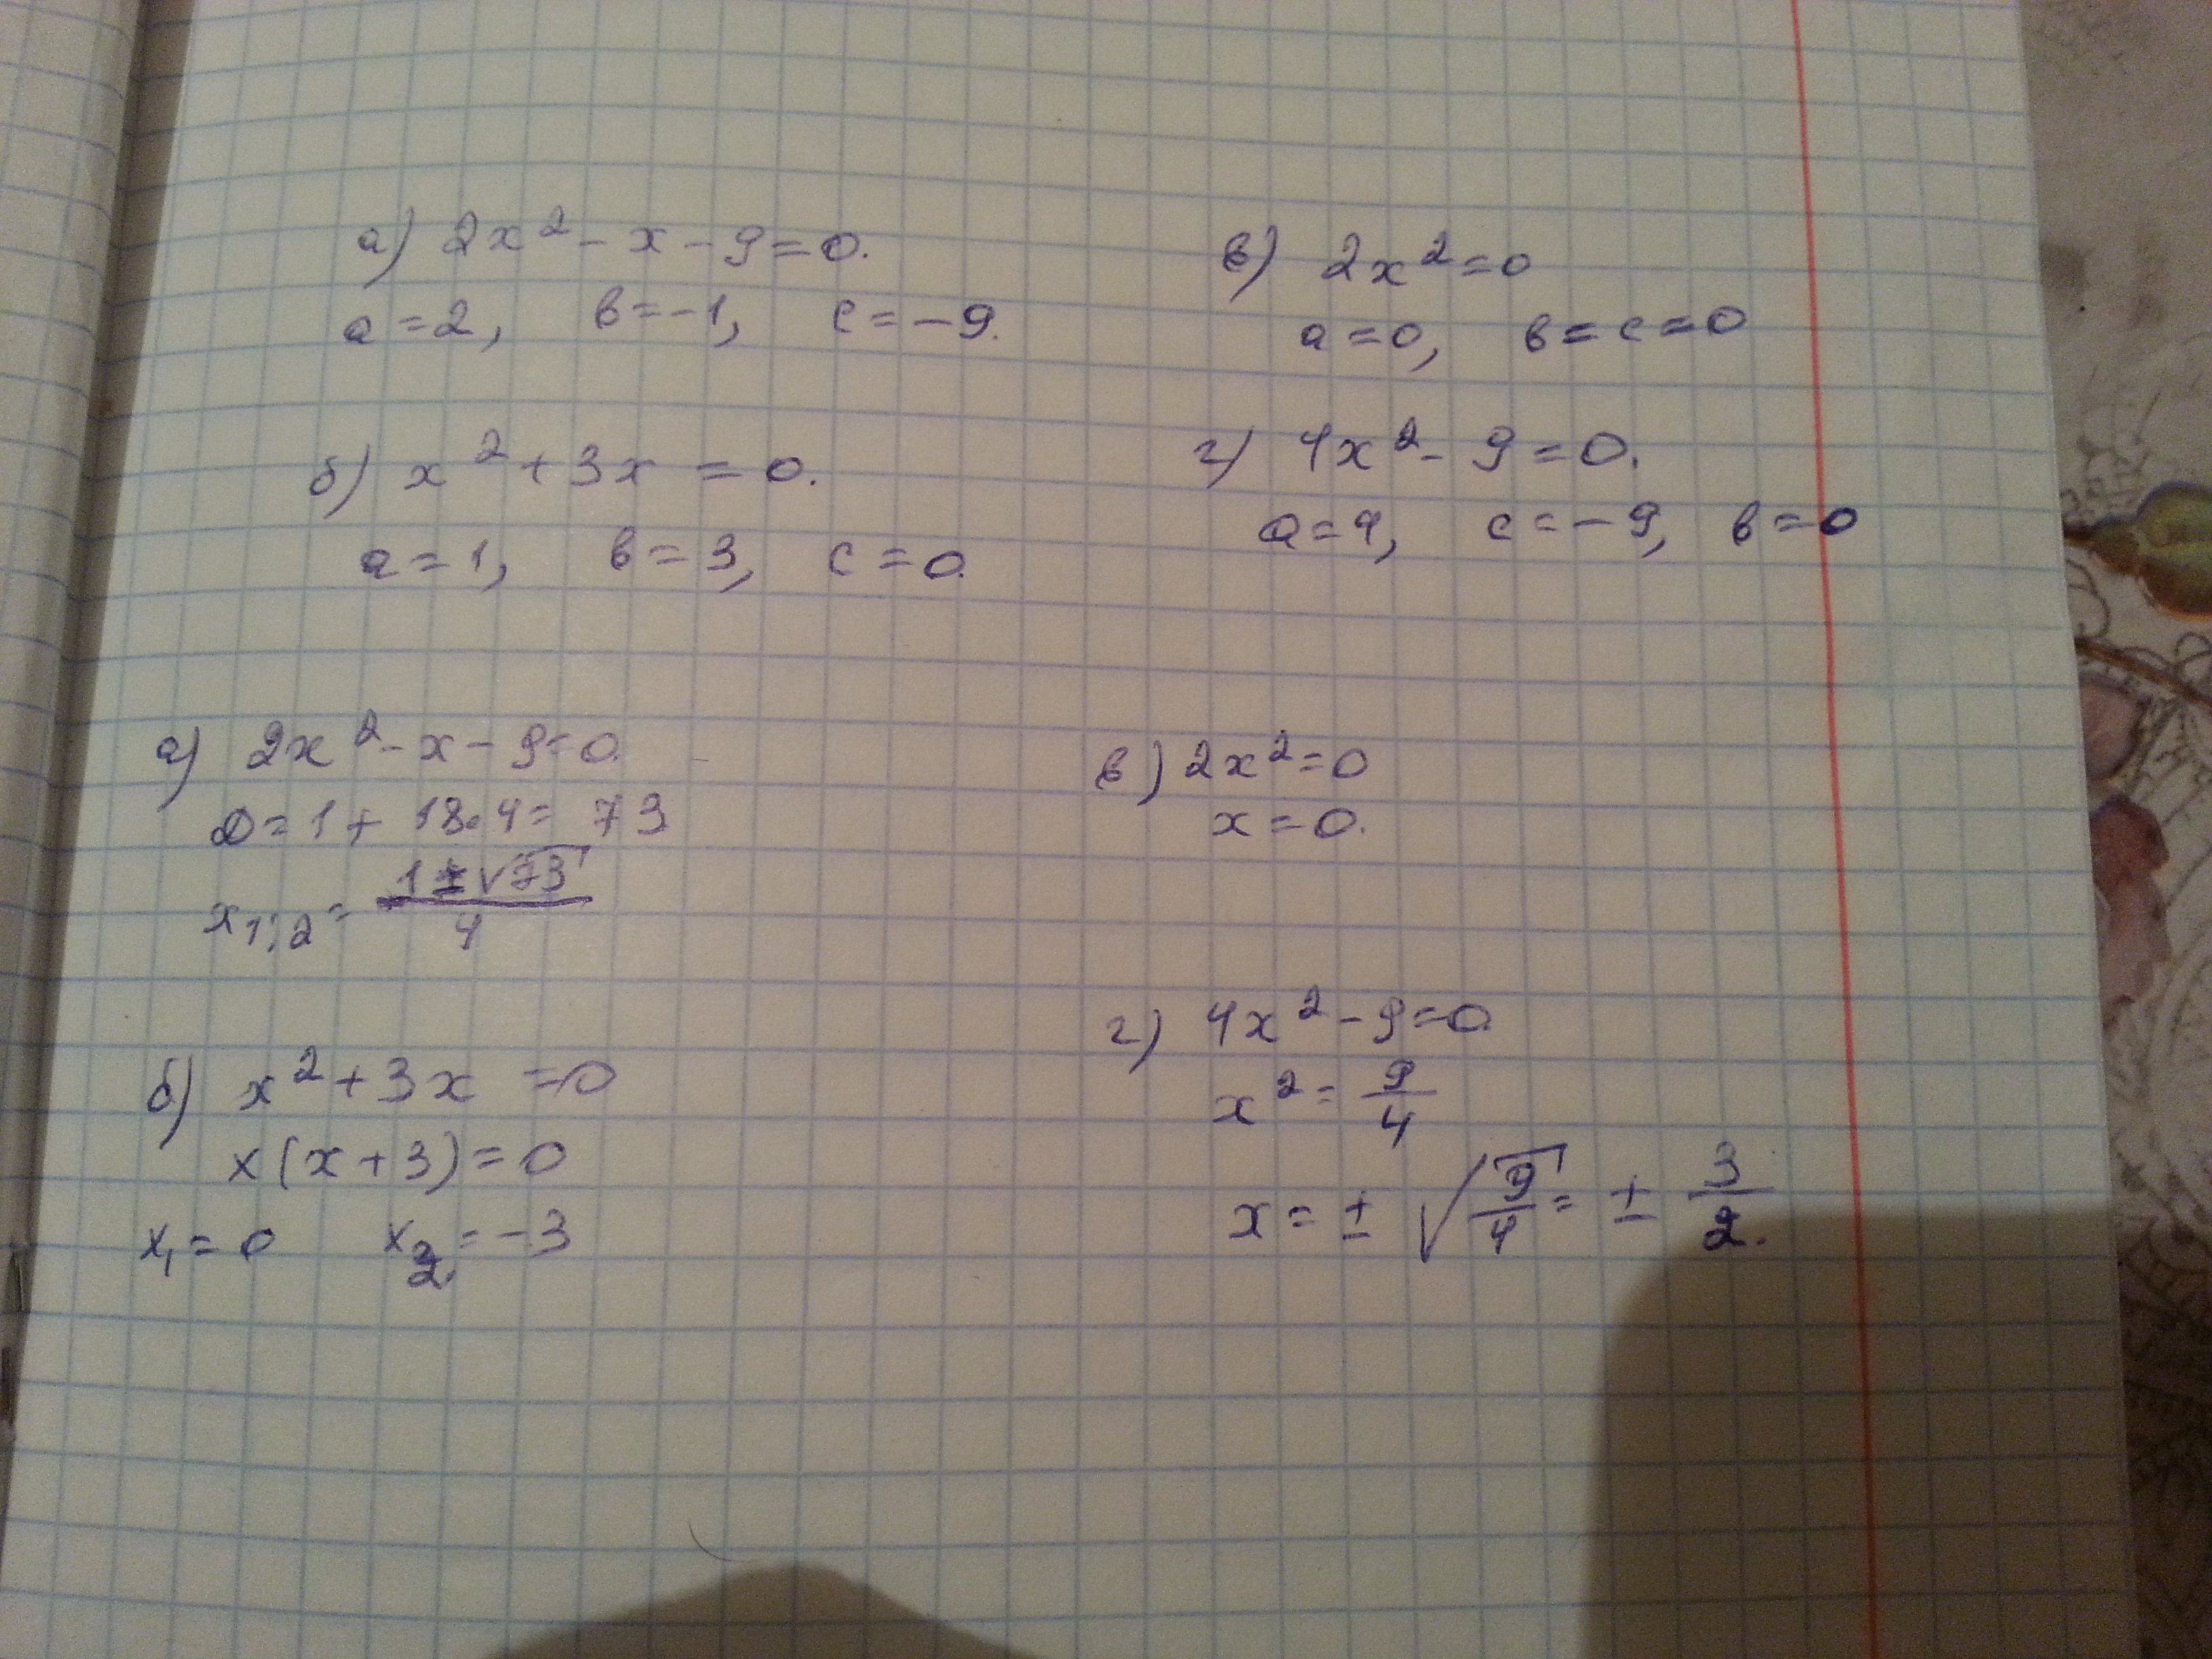 а) 2x² - x - 9 = 0.
a = 2, в = -1, c = -9.
б) x² + 3x = 0.
a = 1, в = 3, c = 0.
в) 2x² = 0
a = 0, в = c = 0
г) 4x² - 9 = 0.
a = 4, c = -9, в = 0
а) 2x² - x - 9 = 0.
D = 1 + 18·4 = 73
x₁;₂ = (1 ± √73)/4
б) x² + 3x = 0
x(x + 3) = 0
x₁ = 0 x₂ = -3
в) 2x² = 0
x = 0.
г) 4x² - 9 = 0.
x² = 9/4
x = ± √(9/4) = ± 3/2.